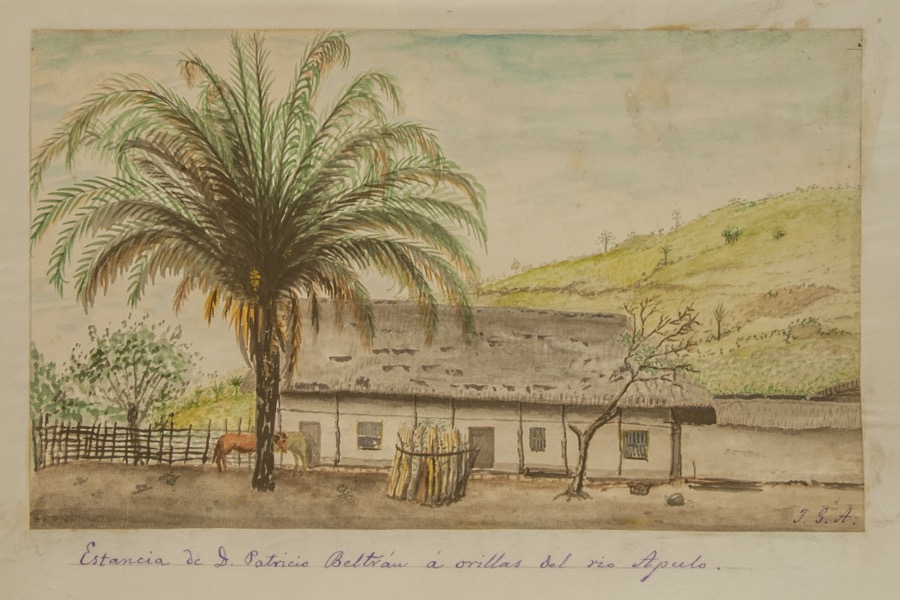 J. G. A.
Estancia de D. Patricio Beltrán á orillas del rio Apulo.